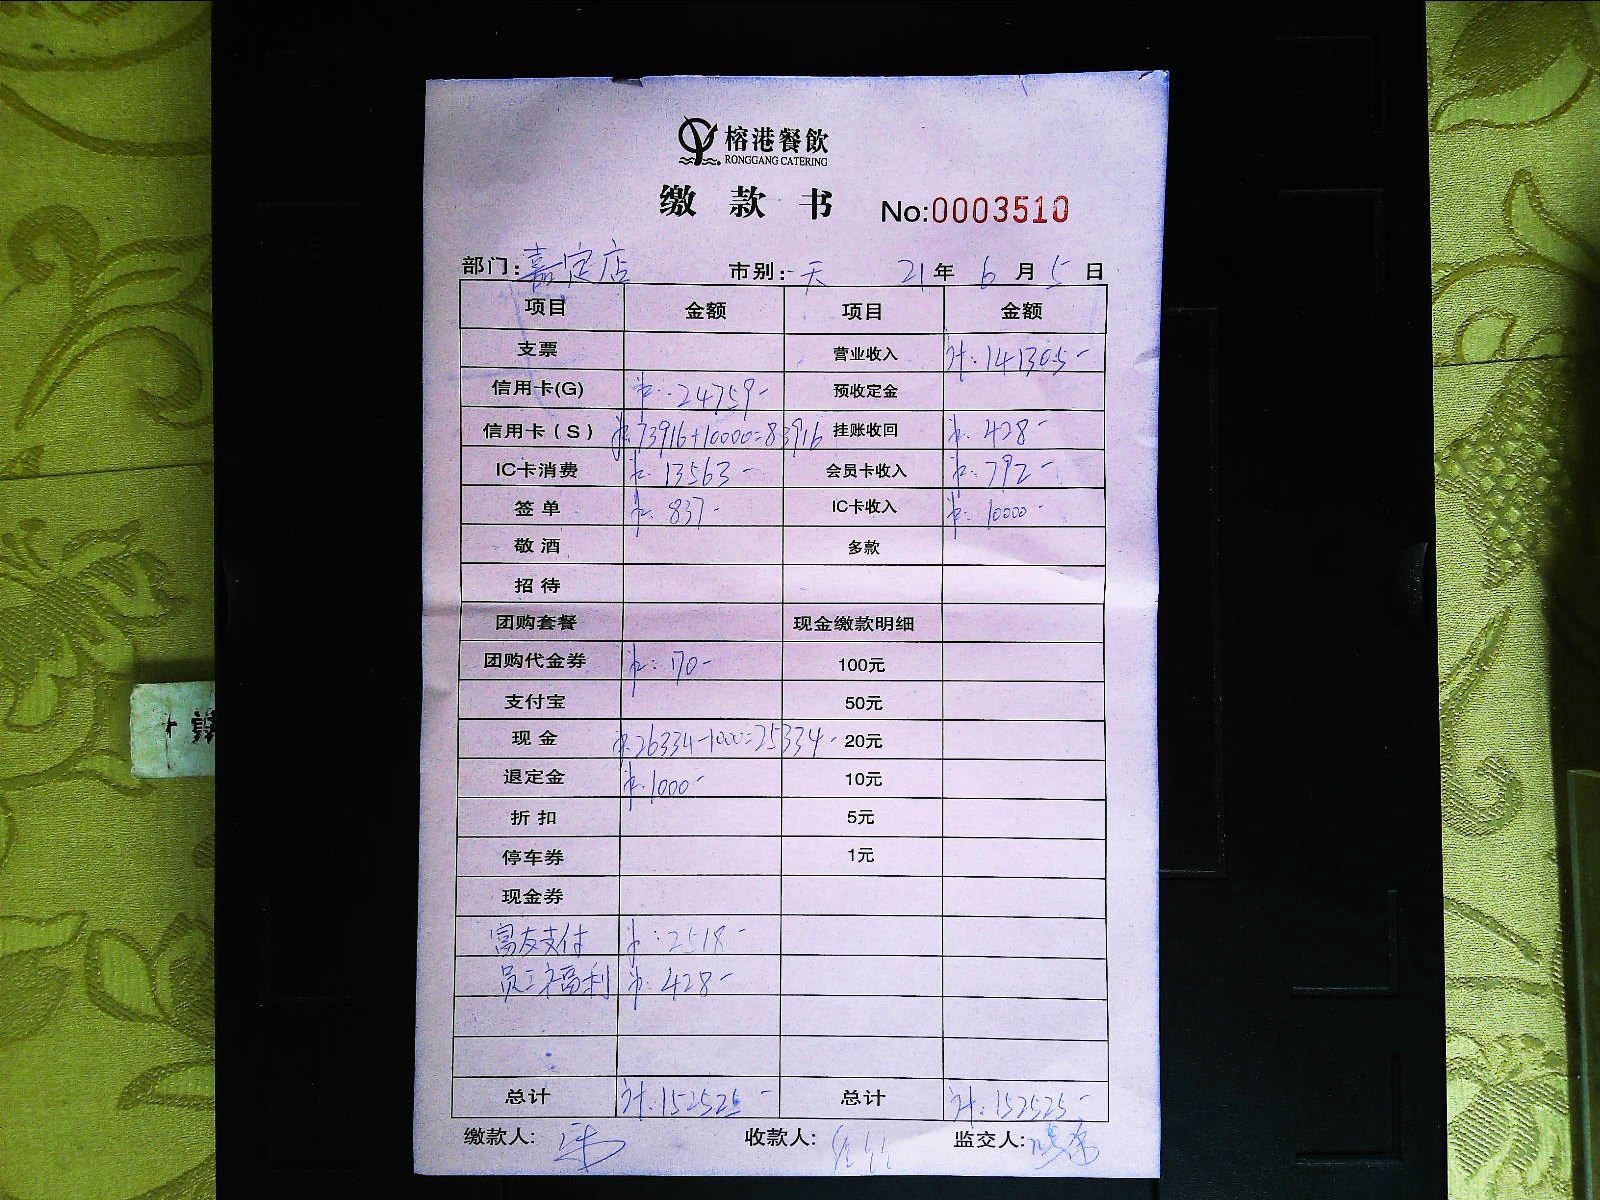 榕港餐飲
RONGGANG CATERING
缴款书 No:0003510
部门:嘉定店 市别:一天 21年6月5日
项目 金额 项目 金额
支票 营业收入 计:141305-
信用卡(G) 24759- 预收定金
信用卡(S) 73916+10000=83916 挂账收回 428-
IC卡消费 13563- 会员卡收入 792-
签单 837- IC卡收入 10000-
敬酒 多款
招待
团购套餐 现金缴款明细
团购代金券 170- 100元
支付宝 50元
现金 26334-1000=25334- 20元
退定金 1000- 10元
折扣 5元
停车券 1元
现金券
富友支付 2518-
员工福利 428-
总计 计:152525- 总计 计:152525-
缴款人: 收款人: 监交人: